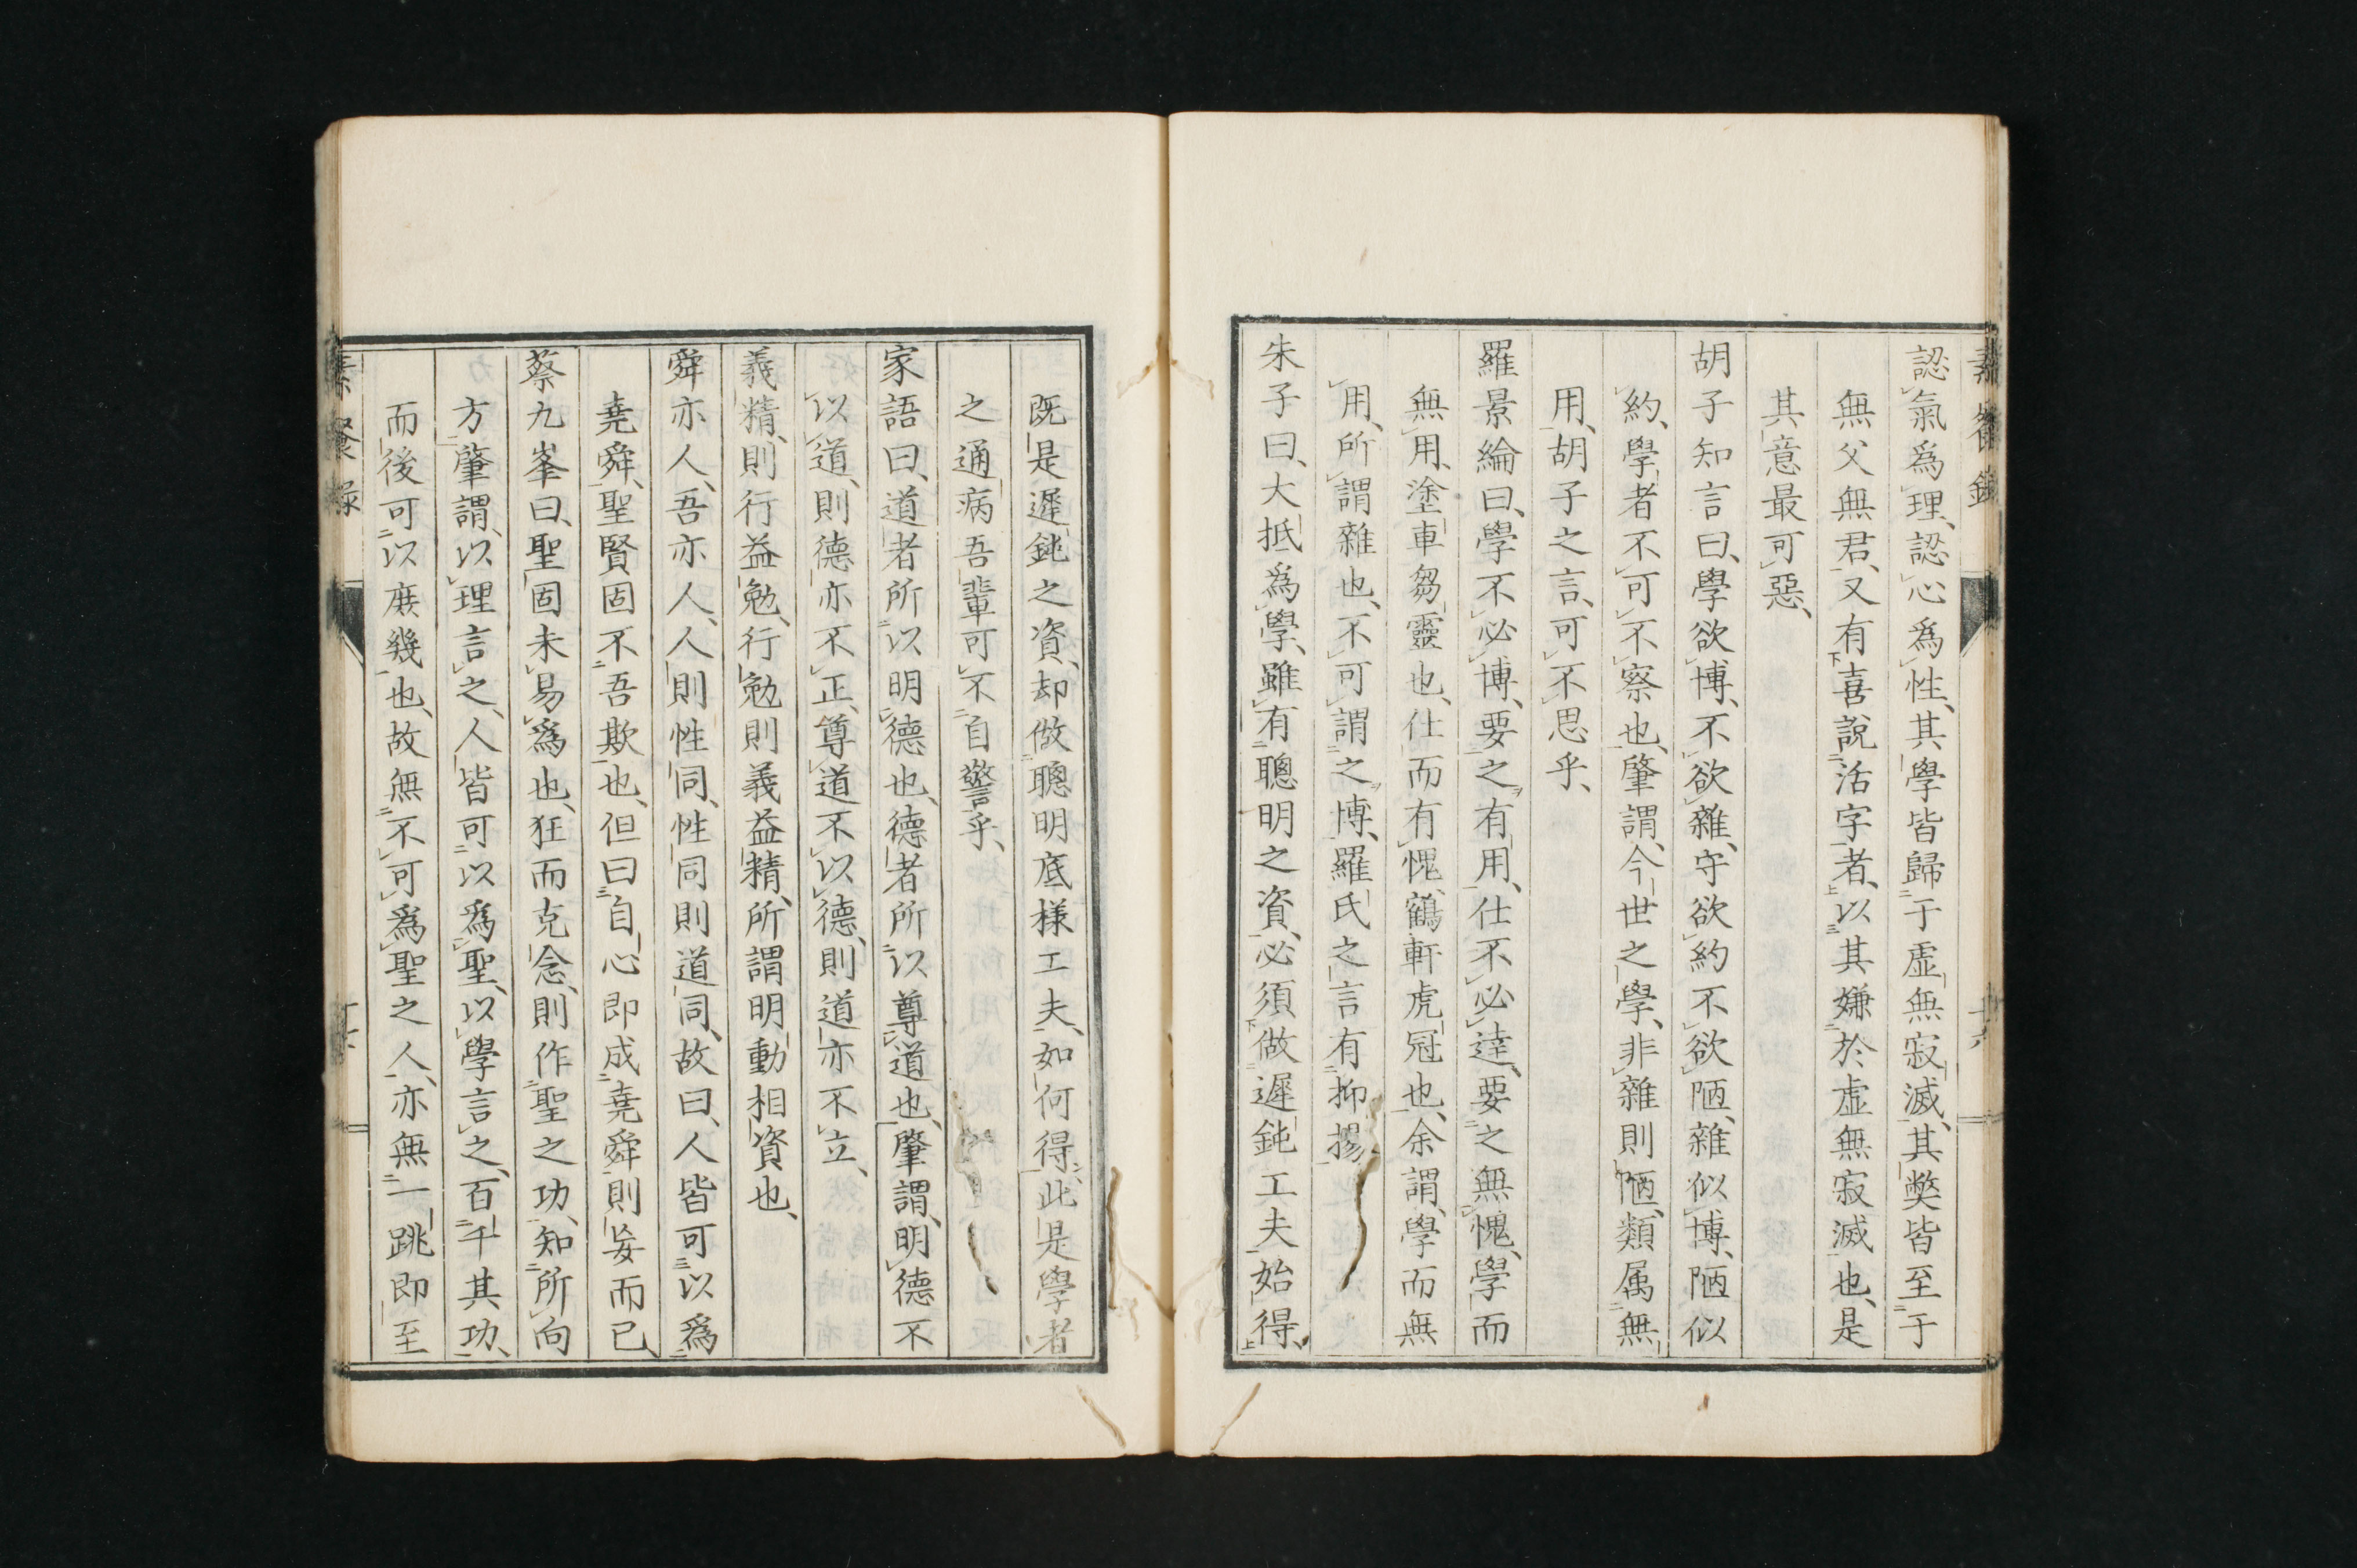 認氣爲理、認心爲性、其學皆歸于虛無寂滅、其獘皆至于
無父無君、又有喜說活字者、以其嫌於虛無寂滅也、是
其意最可惡、
胡子知言曰、學欲博、不欲雜、守欲約不欲陋、雜似博、陋似
約、學者不可不察也、肇謂、今世之學、非雜則陋、類属無
用、胡子之言、可不思乎、
羅景綸曰、學不必博、要之有用、仕不必達、要之無愧、學而
無用、塗車芻靈也、仕而有愧、鶴軒虎冠也、余謂、學而無
用、所謂雜也、不可謂之博、羅氏之言有抑揚
朱子曰、大抵爲學、雖有聰明之資、必須做遲鈍工夫、始得、
既是遲鈍之資、却做聰明底樣工夫、如何得、此是學者
之通病吾輩可不自警乎、
家語曰、道者所以明德也、德者所以尊道也、肇謂、明德不
以道、則德亦不正、尊道不以德、則道亦不立、
義精、則行益勉、行勉則義益精、所謂明動相資也、
舜亦人、吾亦人、人則性同、性同則道同、故曰、人皆可以爲
堯舜、聖賢固不吾欺也、但曰自心即成堯舜則妄而已、
蔡九峯曰、聖固未易爲也、狂而克念、則作聖之功、知所向
方、肇謂、以理言之、人皆可以爲聖、以學言之、百千其功、
而後可以庶幾也、故無不可爲聖之人、亦無一跳即至